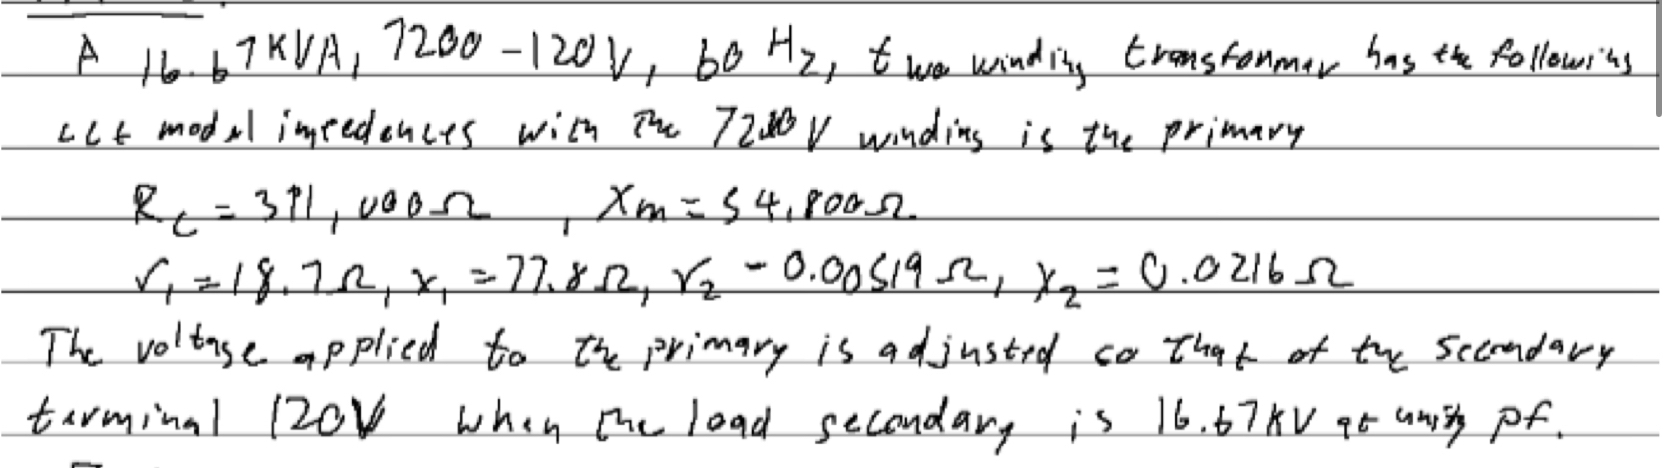 A 16.67KVA, 7200-120V, 60 Hz, two winding transformer has the following
cct model impedences with the 7200V winding is the primary
Rc = 391,000Ω, Xm = 54,800Ω.
r₁ = 18.7Ω, x₁ = 77.8Ω, r₂ - 0.00519Ω, x₂ = 0.0216Ω
The voltage applied to the primary is adjusted so that at the secondary
terminal 120V when the load secondary is 16.67KV at unity pf.